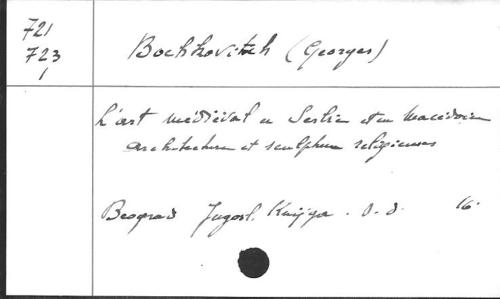 721
723
1
Bochkovitch (Georges)
L'art médiéval en Serbie et en Macédoine
Architecture et sculpture religieuses
Beograd Jugosl. Knjiga. S. d. 16.